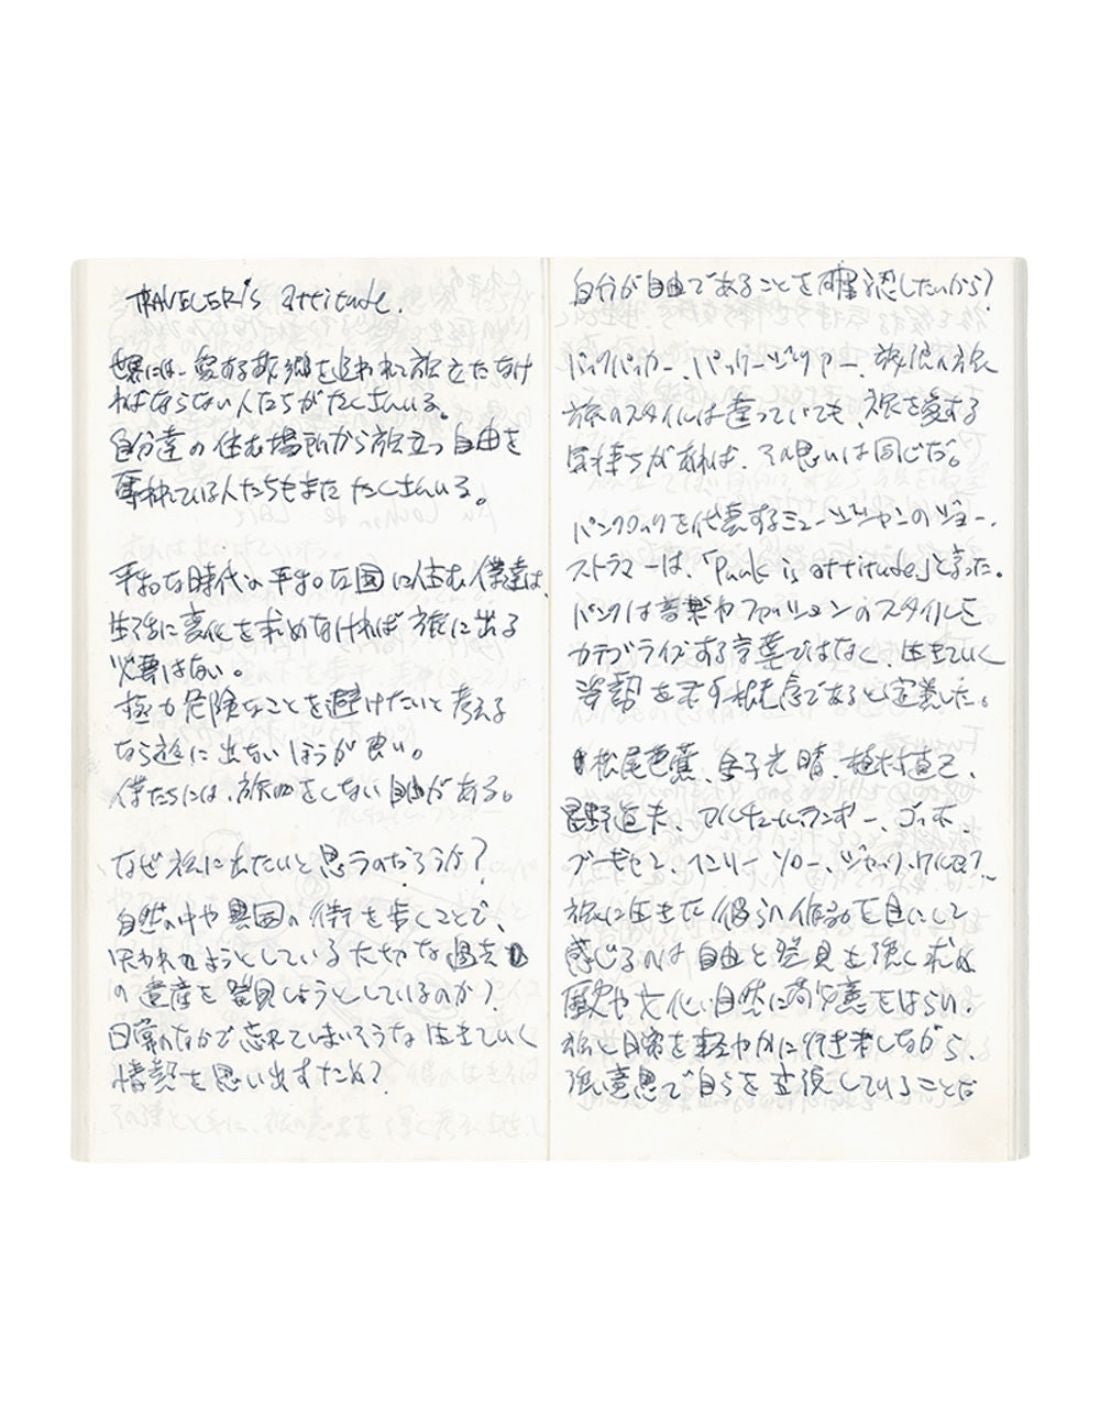 TRAVELER'S attitude.
世界には、愛する故郷を追われて旅立たなけ
ればならない人たちがたくさんいる。
自分達の住む場所から旅立つ自由を
奪われている人たちもまたたくさんいる。
平和な時代の平和な国に住む僕達は、
生活に変化を求めなければ旅に出る
必要はない。
極力危険なことを避けたいと考える
なら旅に出ないほうが良い。
僕たちには、旅をしない自由がある。
なぜ旅に出たいと思うのだろうか?
自然の中や異国の街を歩くことで、
失われようとしている大切な過去
の遺産を発見しようとしているのか?
日常のなかで忘れてしまいそうな生きていく
情熱を思い出すため?
自分が自由であることを確認したいから?
バックパッカー、パッケージツアー、放浪の旅
旅のスタイルは違っていても、旅を愛する
気持ちがあれば、その思いは同じだ。
パンクロックを代表するミュージシャンのジョー・
ストラマーは、「Punk is attitude」と言った。
パンクは音楽やファッションのスタイルを
カテゴライズする言葉ではなく、生きていく
姿勢を示す概念であると定義した。
松尾芭蕉、金子光晴、植村直己、
星野道夫、アルチュール・ランボー、ゴッホ、
ブーゲンセン、ヘンリー・ソロー、ジャック・ケルアック…
旅に生きた彼らの作品を目にして
感じるのは自由と発見を強く求め
歴史や文化、自然に対し敬意をはらい、
旅と日常を軽やかに行き来しながら、
強い意思で自らを主張していることだ